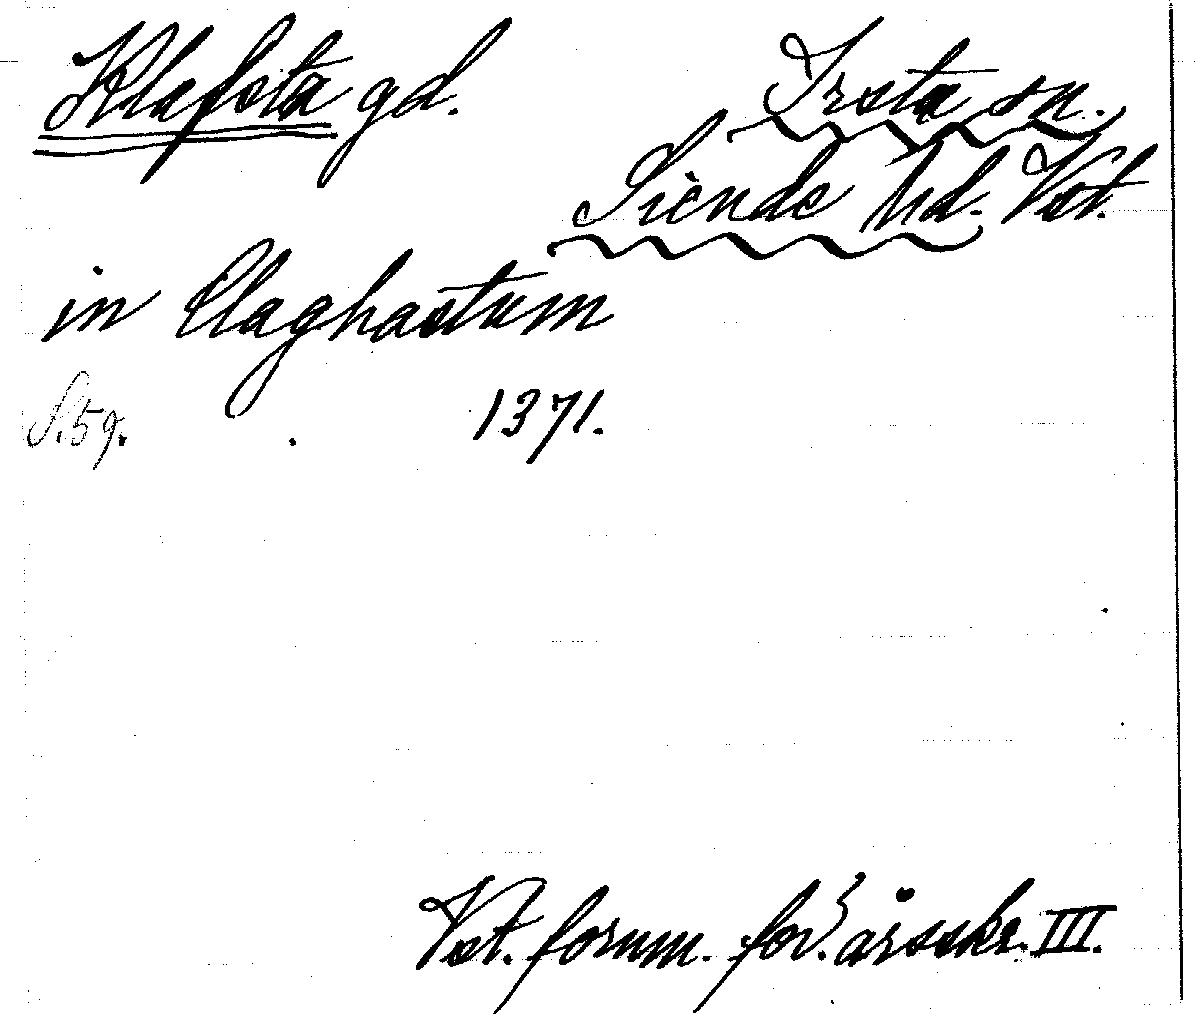 Klafsta gd.
Irsta sn.
Siende hd. Vst.
in Claghastum
S. 59.
1371.
Vst. fornm. för. årsskr. III.